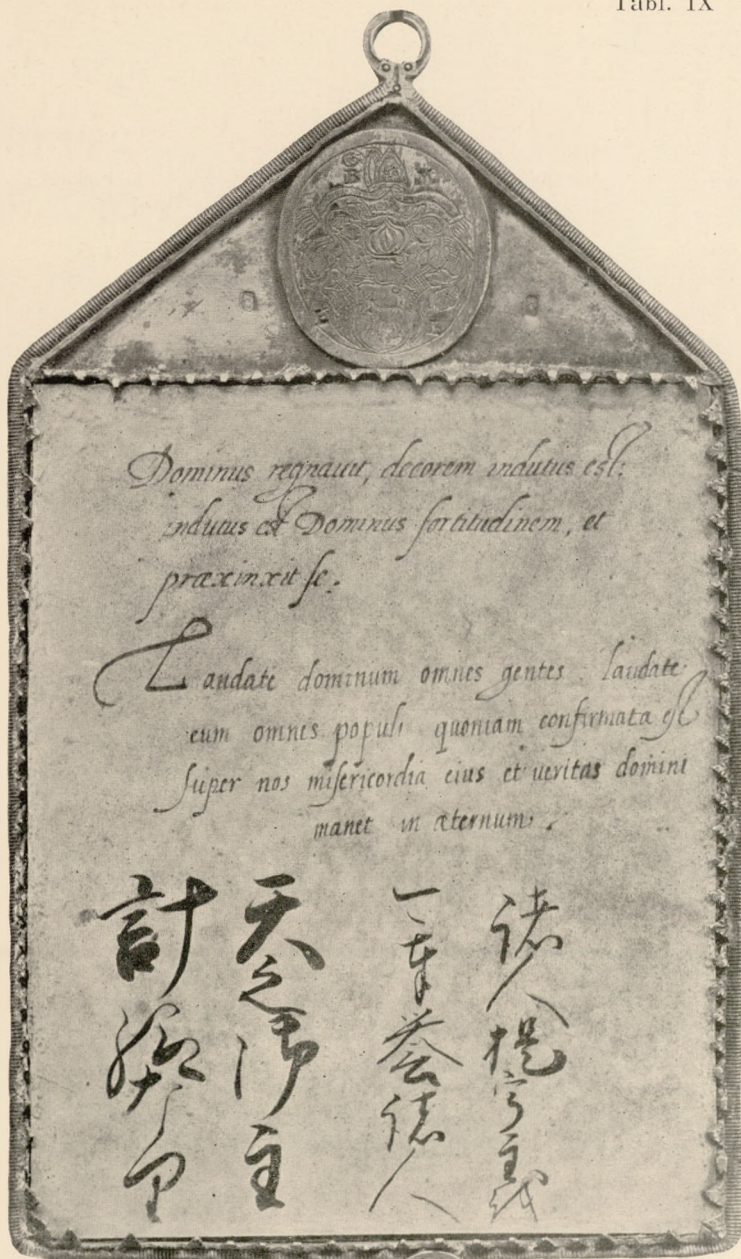 Tabl. IX
Dominus regnauit, decorem indutus est:
indutus est Dominus fortitudinem, et
præxinxit se.
Laudate dominum omnes gentes laudate
eum omnes populi quoniam confirmata est
super nos misericordia eius et ueritas domini
manet in æternum.
諸人提主
一誉諸人
天之御主
計